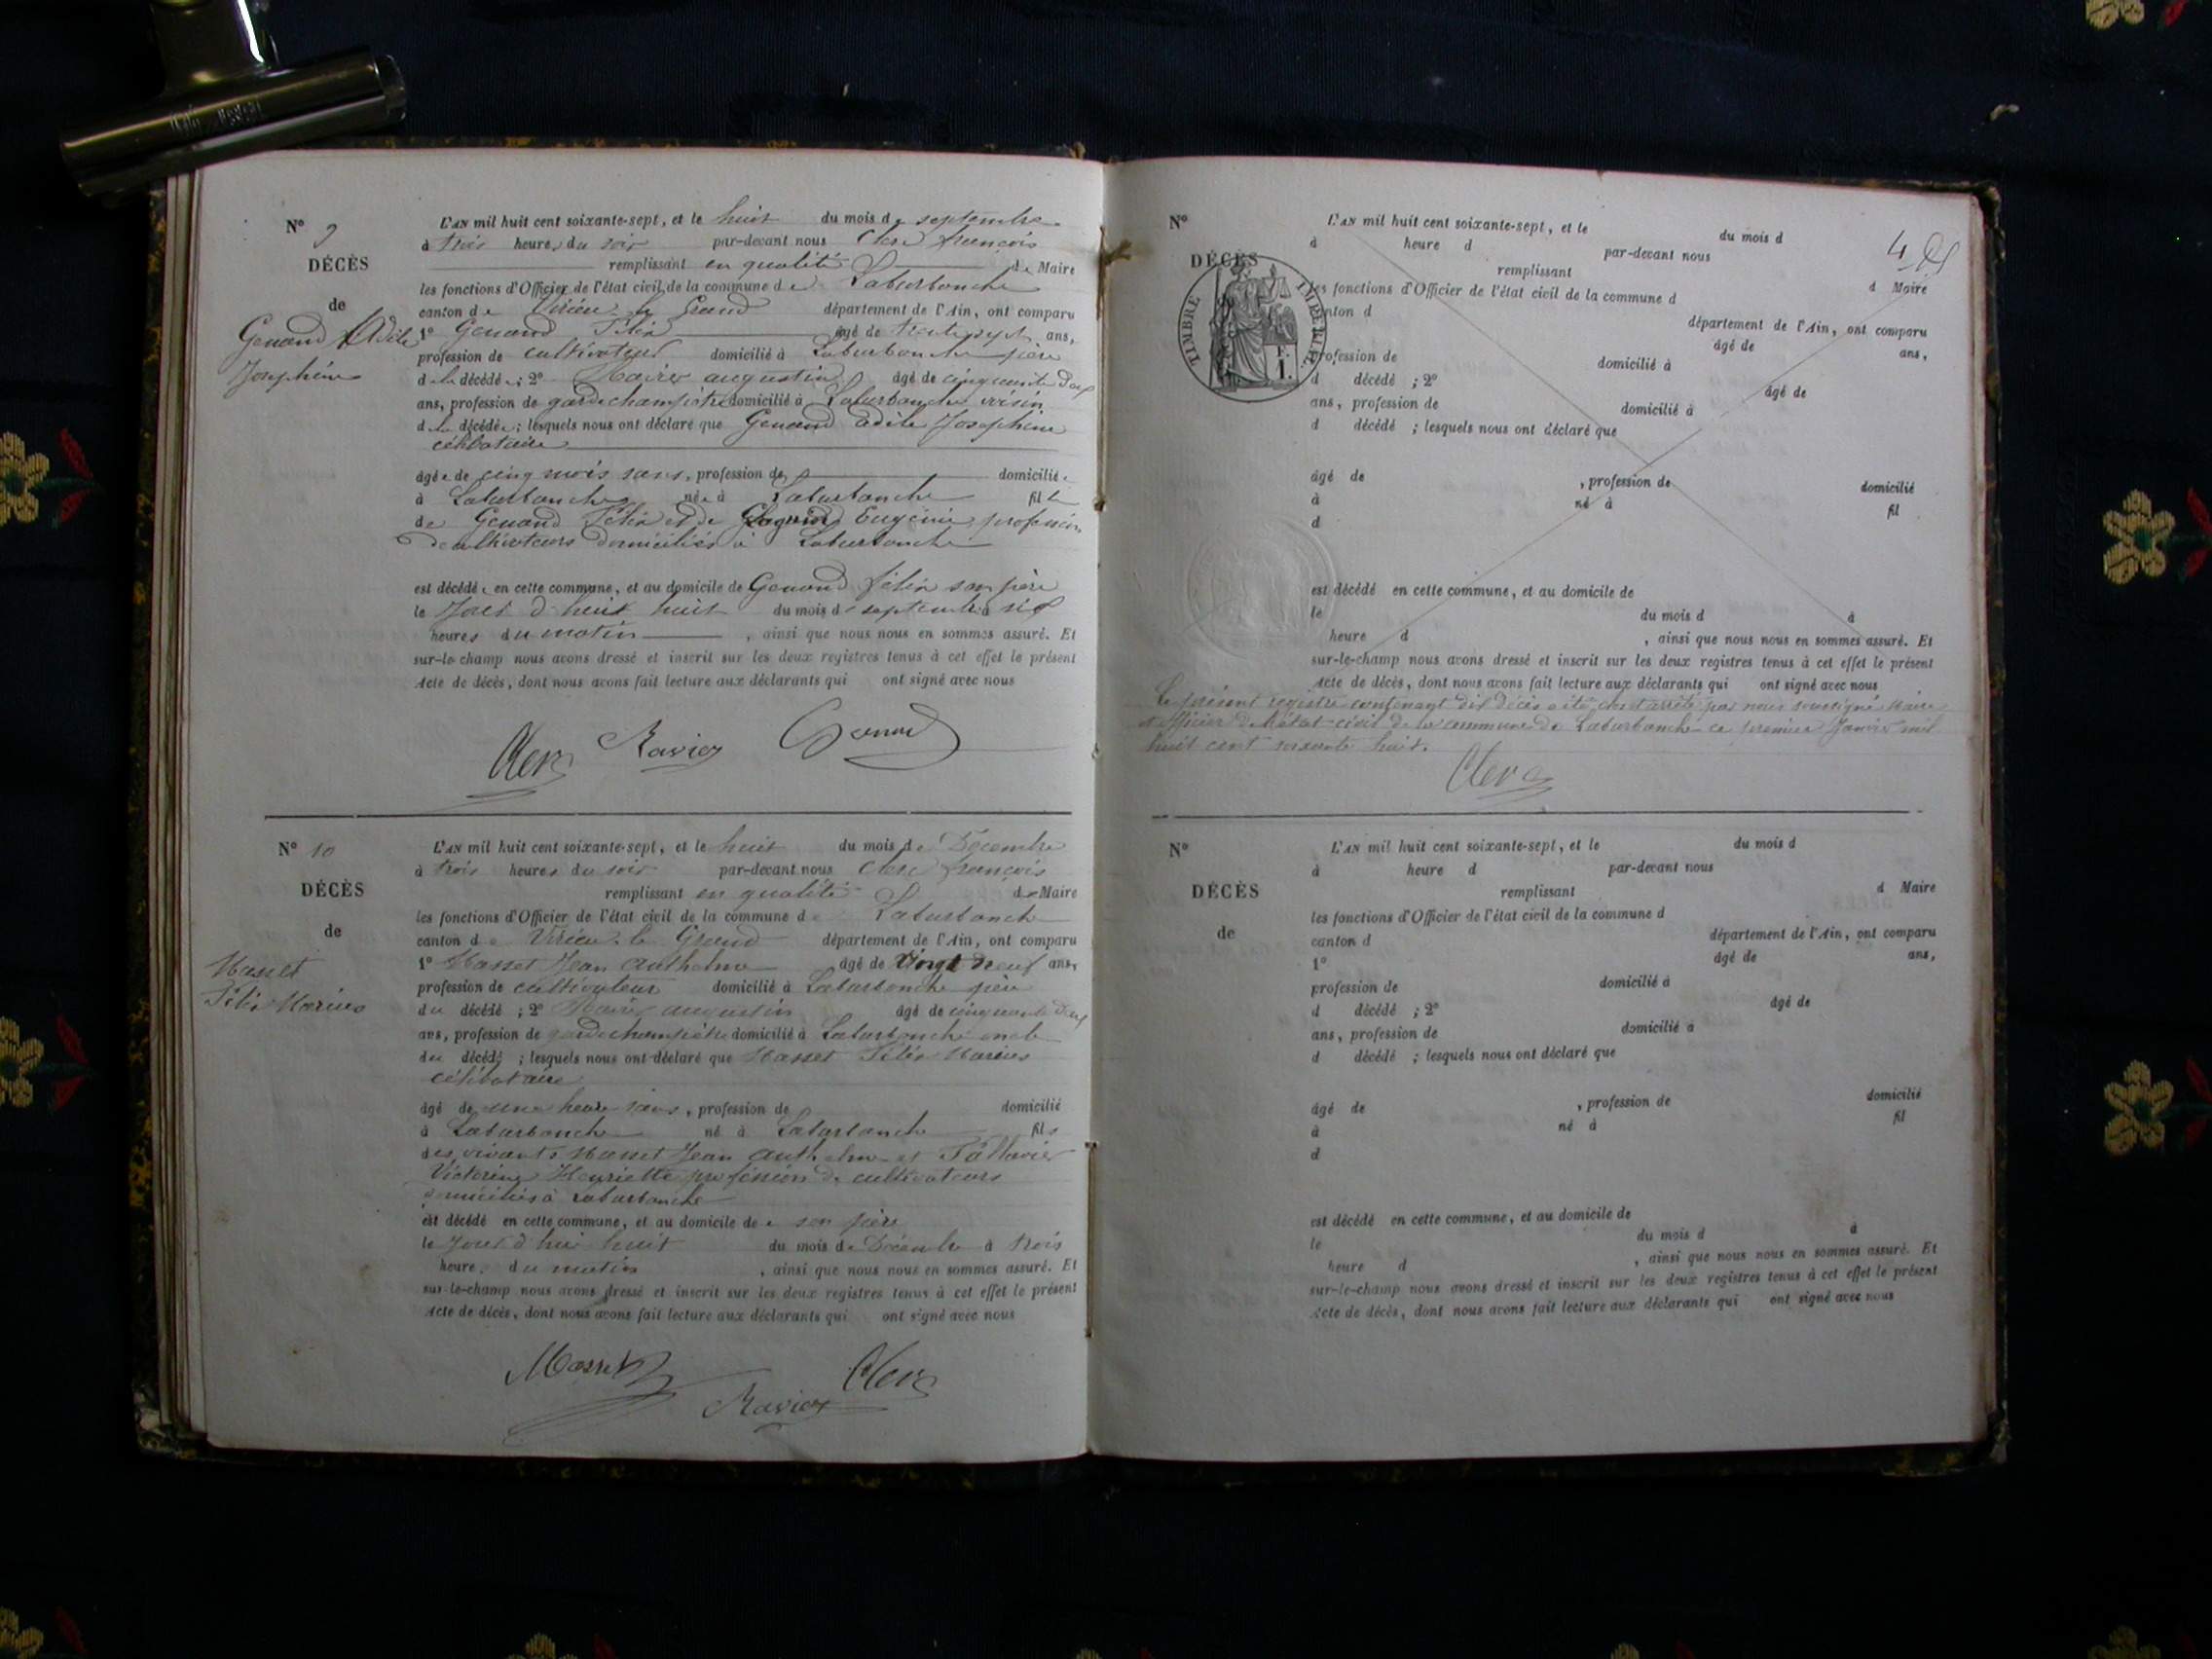 N° 9
DÉCÈS
de
Genand Adèle
Josephine
L'AN mil huit cent soixante-sept, et le huit du mois de septembre
à trois heures du soir par-devant nous Clerc françois
remplissant en qualité de Maire
les fonctions d'Officier de l'état civil de la commune de Laburbanche
canton de Virieu le Grand département de l'Ain, ont comparu
1° Genand Félix âgé de trente sept ans,
profession de cultivateur domicilié à Laburbanche père
de la décédée; 2° Ravier augustin âgé de cinquante deux
ans, profession de garde champêtre domicilié à Laburbanche voisin
de la décédée; lesquels nous ont déclaré que Genand Adèle Josephine
célibataire
âgée de cinq mois sans, profession de domiciliée
à Laburbanche née à Laburbanche fille
de Genand Félix et de Eugénie profession
de cultivateurs domiciliés à Laburbanche
est décédée en cette commune, et au domicile de Genand félix son père
le Jour d'huit huit du mois de septembre à six
heures du matin , ainsi que nous nous en sommes assuré. Et
sur-le-champ nous avons dressé et inscrit sur les deux registres tenus à cet effet le présent
Acte de décès, dont nous avons fait lecture aux déclarants qui ont signé avec nous
Clerc Ravier Genand
N° 10
DÉCÈS
de
Masset
Félix Marius
L'AN mil huit cent soixante-sept, et le huit du mois de Décembre
à trois heures du soir par-devant nous Clerc françois
remplissant en qualité de Maire
les fonctions d'Officier de l'état civil de la commune de Laburbanche
canton de Virieu le Grand département de l'Ain, ont comparu
1° Masset Jean Anthelme âgé de vingt neuf ans,
profession de cultivateur domicilié à Laburbanche père
du décédé ; 2° Ravier augustin âgé de cinquante deux
ans, profession de garde champêtre domicilié à Laburbanche oncle
du décédé ; lesquels nous ont déclaré que Masset Félix Marius
célibataire
âgé de une heure sans, profession de domicilié
à Laburbanche né à Laburbanche fils
des vivants Masset Jean anthelme et
Victorine Henriette profession de cultivateurs
domiciliés à Laburbanche
est décédé en cette commune, et au domicile de son père
le Jour d'hui huit du mois de Décembre à trois
heure. du matin , ainsi que nous nous en sommes assuré. Et
sur-le-champ nous avons dressé et inscrit sur les deux registres tenus à cet effet le présent
Acte de décès, dont nous avons fait lecture aux déclarants qui ont signé avec nous
Masset Clerc
Ravier
4
N°
DÉCÈS
TIMBRE IMPÉRIAL
F.
1.
L'AN mil huit cent soixante-sept, et le du mois d
à heure d par-devant nous
remplissant d Maire
les fonctions d'Officier de l'état civil de la commune d
canton d département de l'Ain, ont comparu
âgé de ans,
profession de domicilié à
d décédé ; 2° âgé de
ans, profession de domicilié à
d décédé ; lesquels nous ont déclaré que
âgé de , profession de domicilié
à né à fil
d
est décédé en cette commune, et au domicile de
le du mois d à
heure d , ainsi que nous nous en sommes assuré. Et
sur-le-champ nous avons dressé et inscrit sur les deux registres tenus à cet effet le présent
Acte de décès, dont nous avons fait lecture aux déclarants qui ont signé avec nous
Le présent registre contenant dix décès a été clos et arrêté par nous soussigné Maire
et officier de l'état-civil de la commune de Laburbanche ce premier Janvier mil
huit cent soixante huit.
Clerc
N°
DÉCÈS
de
L'AN mil huit cent soixante-sept, et le du mois d
à heure d par-devant nous
remplissant d Maire
les fonctions d'Officier de l'état civil de la commune d
canton d département de l'Ain, ont comparu
1° âgé de ans,
profession de domicilié à
d décédé ; 2° âgé de
ans, profession de domicilié à
d décédé ; lesquels nous ont déclaré que
âgé de , profession de domicilié
à né à fil
d
est décédé en cette commune, et au domicile de
le du mois d à
heure d , ainsi que nous nous en sommes assuré. Et
sur-le-champ nous avons dressé et inscrit sur les deux registres tenus à cet effet le présent
Acte de décès, dont nous avons fait lecture aux déclarants qui ont signé avec nous